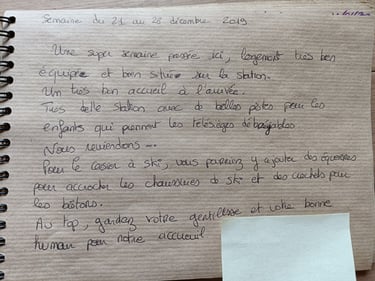 Semaine du 21 au 28 décembre 2019
Une super semaine passée ici, logement très bien
équipée et bien située sur la station.
Un très bon accueil à l'arrivée.
Très belle station avec de belles pistes pour les
enfants qui prennent les télésièges débrayables
Nous reviendrons ...
Pour le casier à ski, vous pourriez y ajouter des équerres
pour accrocher les chaussures de ski et des crochets pour
les bâtons.
Au top, gardez votre gentillesse et votre bonne
humeur pour notre accueil